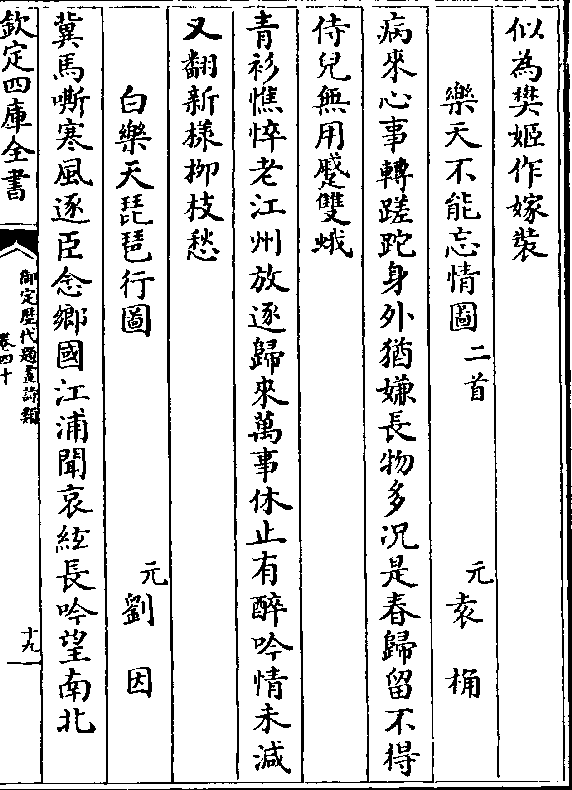 似為樊姬作嫁裝
樂天不能忘情圖二首 元袁桷
病來心事轉蹉跎身外猶嫌長物多况是春歸留不得
侍兒無用蹙雙蛾
青衫憔悴老江州放逐歸來萬事休止有醉吟情未減
又翻新様柳枝愁
白樂天琵琶行圖 元劉因
冀馬嘶寒風逐臣念鄉國江浦聞哀絃長吟望南北
欽定四庫全書
御定歴代題畫詩類
卷四十
十九